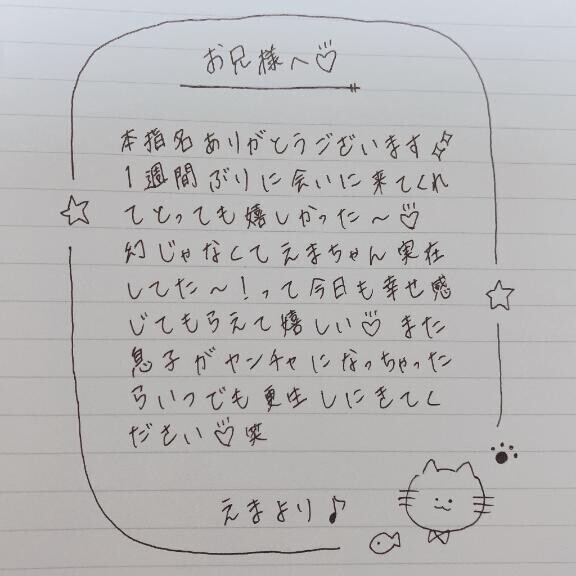 お兄様へ♡
本指名ありがとうございます✨
1週間ぶりに会いに来てくれ
てとっても嬉しかった〜♡
幻じゃなくてえまちゃん実在
してた〜！って今日も幸せ感
じてもらえて嬉しい♡また
息子がヤンチャになっちゃった
らいつでも更生しにきてく
ださい♡笑
えまより♪